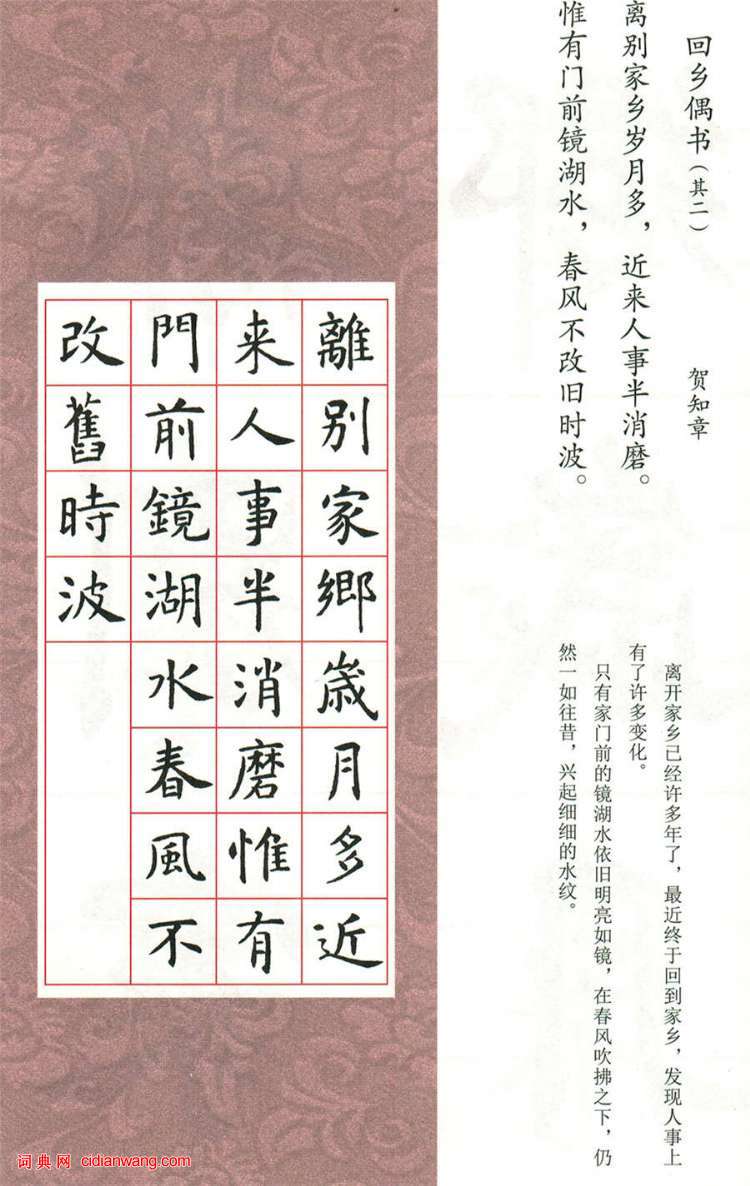 回乡偶书（其二）
贺知章
离别家乡岁月多，近来人事半消磨。
惟有门前镜湖水，春风不改旧时波。
离开家乡已经许多年了，最近终于回到家乡，发现人事上
有了许多变化。
只有家门前的镜湖水依旧明亮如镜，在春风吹拂之下，仍
然一如往昔，兴起细细的水纹。
離别家鄉歲月多近
来人事半消磨惟有
門前鏡湖水春風不
改舊時波
词典网 cidianwang.com